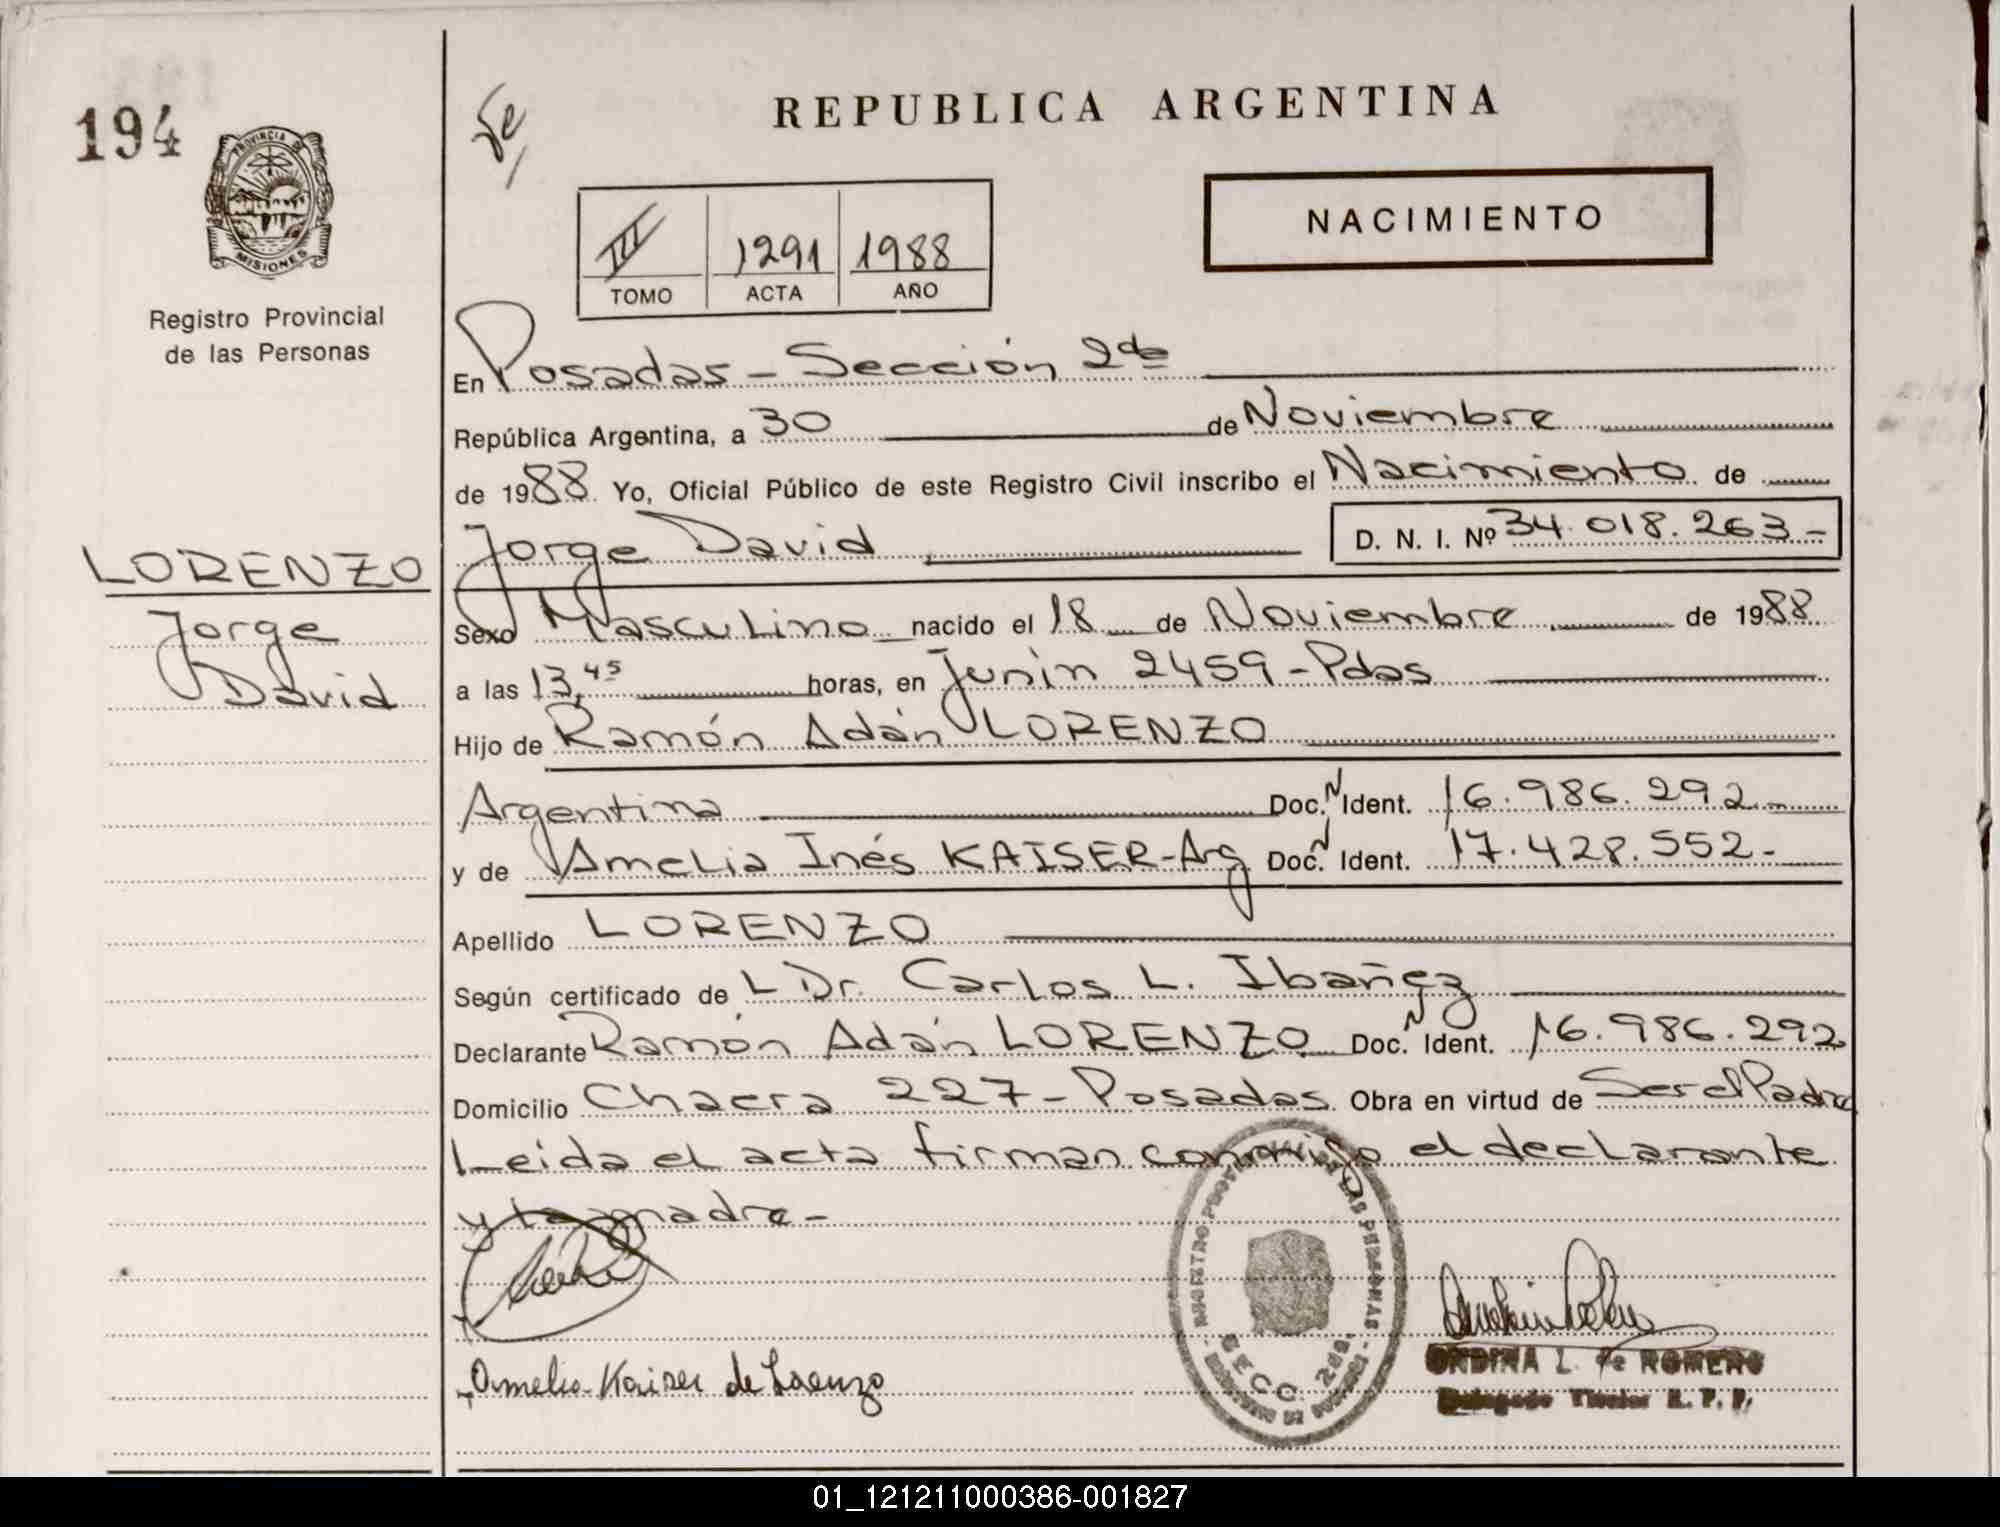 194
PROVINCIA DE
MISIONES
Registro Provincial
de las Personas
REPUBLICA ARGENTINA
NACIMIENTO
III 1291 1988
TOMO ACTA AÑO
En Posadas - Sección 2da
República Argentina, a 30 de Noviembre
de 1988. Yo, Oficial Público de este Registro Civil inscribo el Nacimiento de
Jorge David D. N. I. Nº 34.018.263-
LORENZO
Jorge
David
Sexo Masculino nacido el 18 de Noviembre de 1988
a las 13,45 horas, en Junín 2459 - Pdas
Hijo de Ramón Adán LORENZO
Argentina Doc. N Ident. 16.986.292
y de Amelia Inés KAISER - Arg Doc. N Ident. 17.428.552-
Apellido LORENZO
Según certificado de L Dr. Carlos L. Ibañez
Declarante Ramón Adán LORENZO Doc. N Ident. 16.986.292
Domicilio Chacra 227 - Posadas Obra en virtud de Ser el Padre
Leida el acta firman conmigo el declarante
y la madre -
Amelia Kaiser de Lorenzo
SECC. 2da.
ONDINA L. de ROMERO
Delegado Titular R. P. P.
01_121211000386-001827